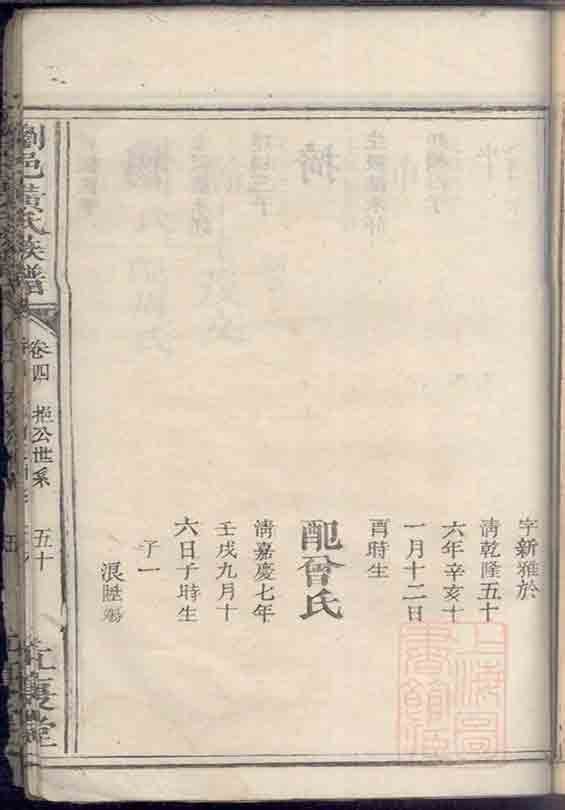 字新雅於
清乾隆五十
六年辛亥十
一月十二日
酉時生
配曾氏
清嘉慶七年
壬戌九月十
六日子時生
子一
浪陞
瀏邑黃氏族譜
卷四
公世系
五十
江夏堂
上海圖書館藏